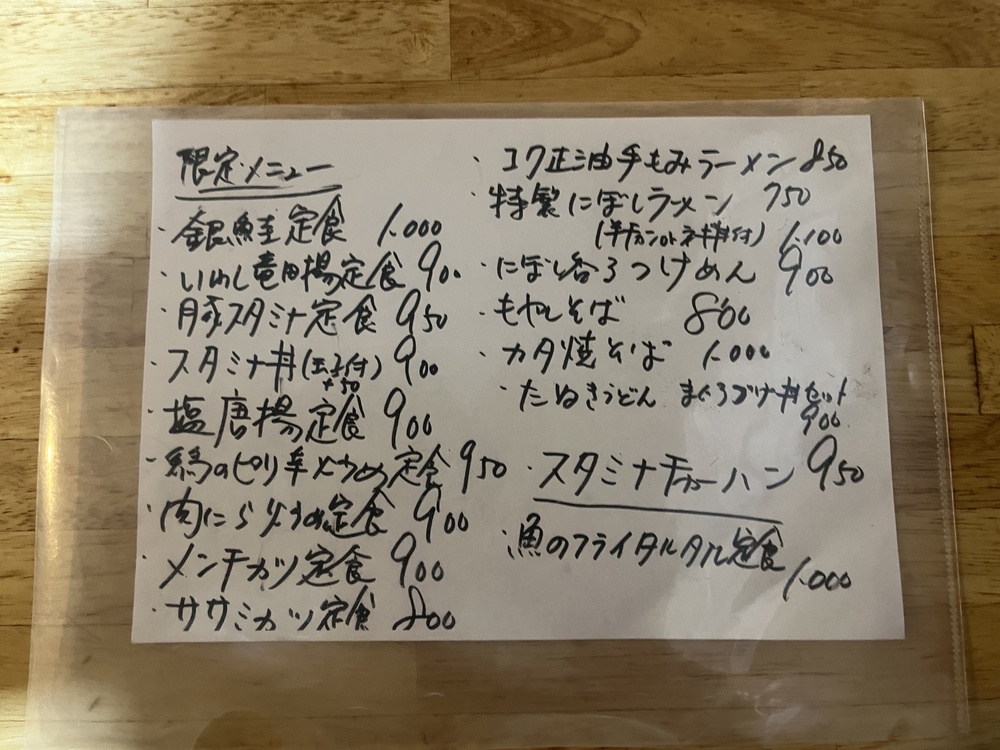 限定メニュー
・銀鮭定食 1.000
・いわし竜田揚定食 900
・豚スタミナ定食 950
・スタミナ丼(玉子付) 900
+50
・塩唐揚定食 900
・鶏のピリ辛炒め定食 950
・肉にら炒め定食 900
・メンチカツ定食 900
・ササミカツ定食 800
・コク正油手もみラーメン 850
・特製にぼしラーメン 750
(半チャンorネギ丼付) 1.100
・にぼし香るつけめん 900
・もやしそば 800
・カタ焼そば 1.000
・たぬきうどん まぐろづけ丼セット
900
・スタミナチャーハン 950
・魚のフライタルタル定食
1.000